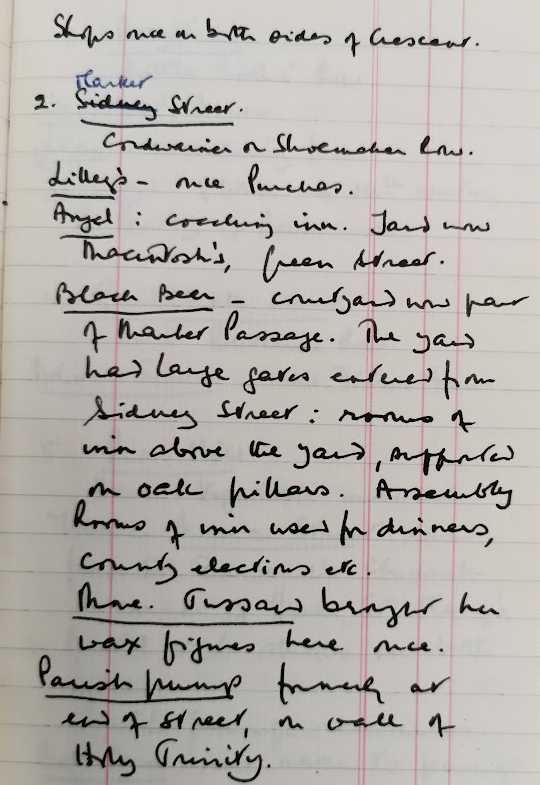 Shops once on both sides of Crescent.
Market
2. Sidney Street.
Cordwainer or Shoemaker Row.
Lilley's - once Purchas.
Angel : coaching inn. Yard now
Macintosh's, Green Street.
Black Bear - courtyard now part
of Market Passage. The yard
had large gates entered from
Sidney Street : rooms of
inn above the yard, supported
on oak pillars. Assembly
Rooms of inn used for dinners,
county elections etc.
Mme. Tussaud brought her
wax figures here once.
Parish pump formerly at
end of street, on wall of
Holy Trinity.